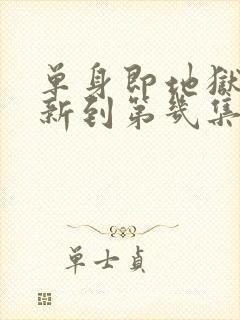 单身即地獄
新到第幾集
單士貞